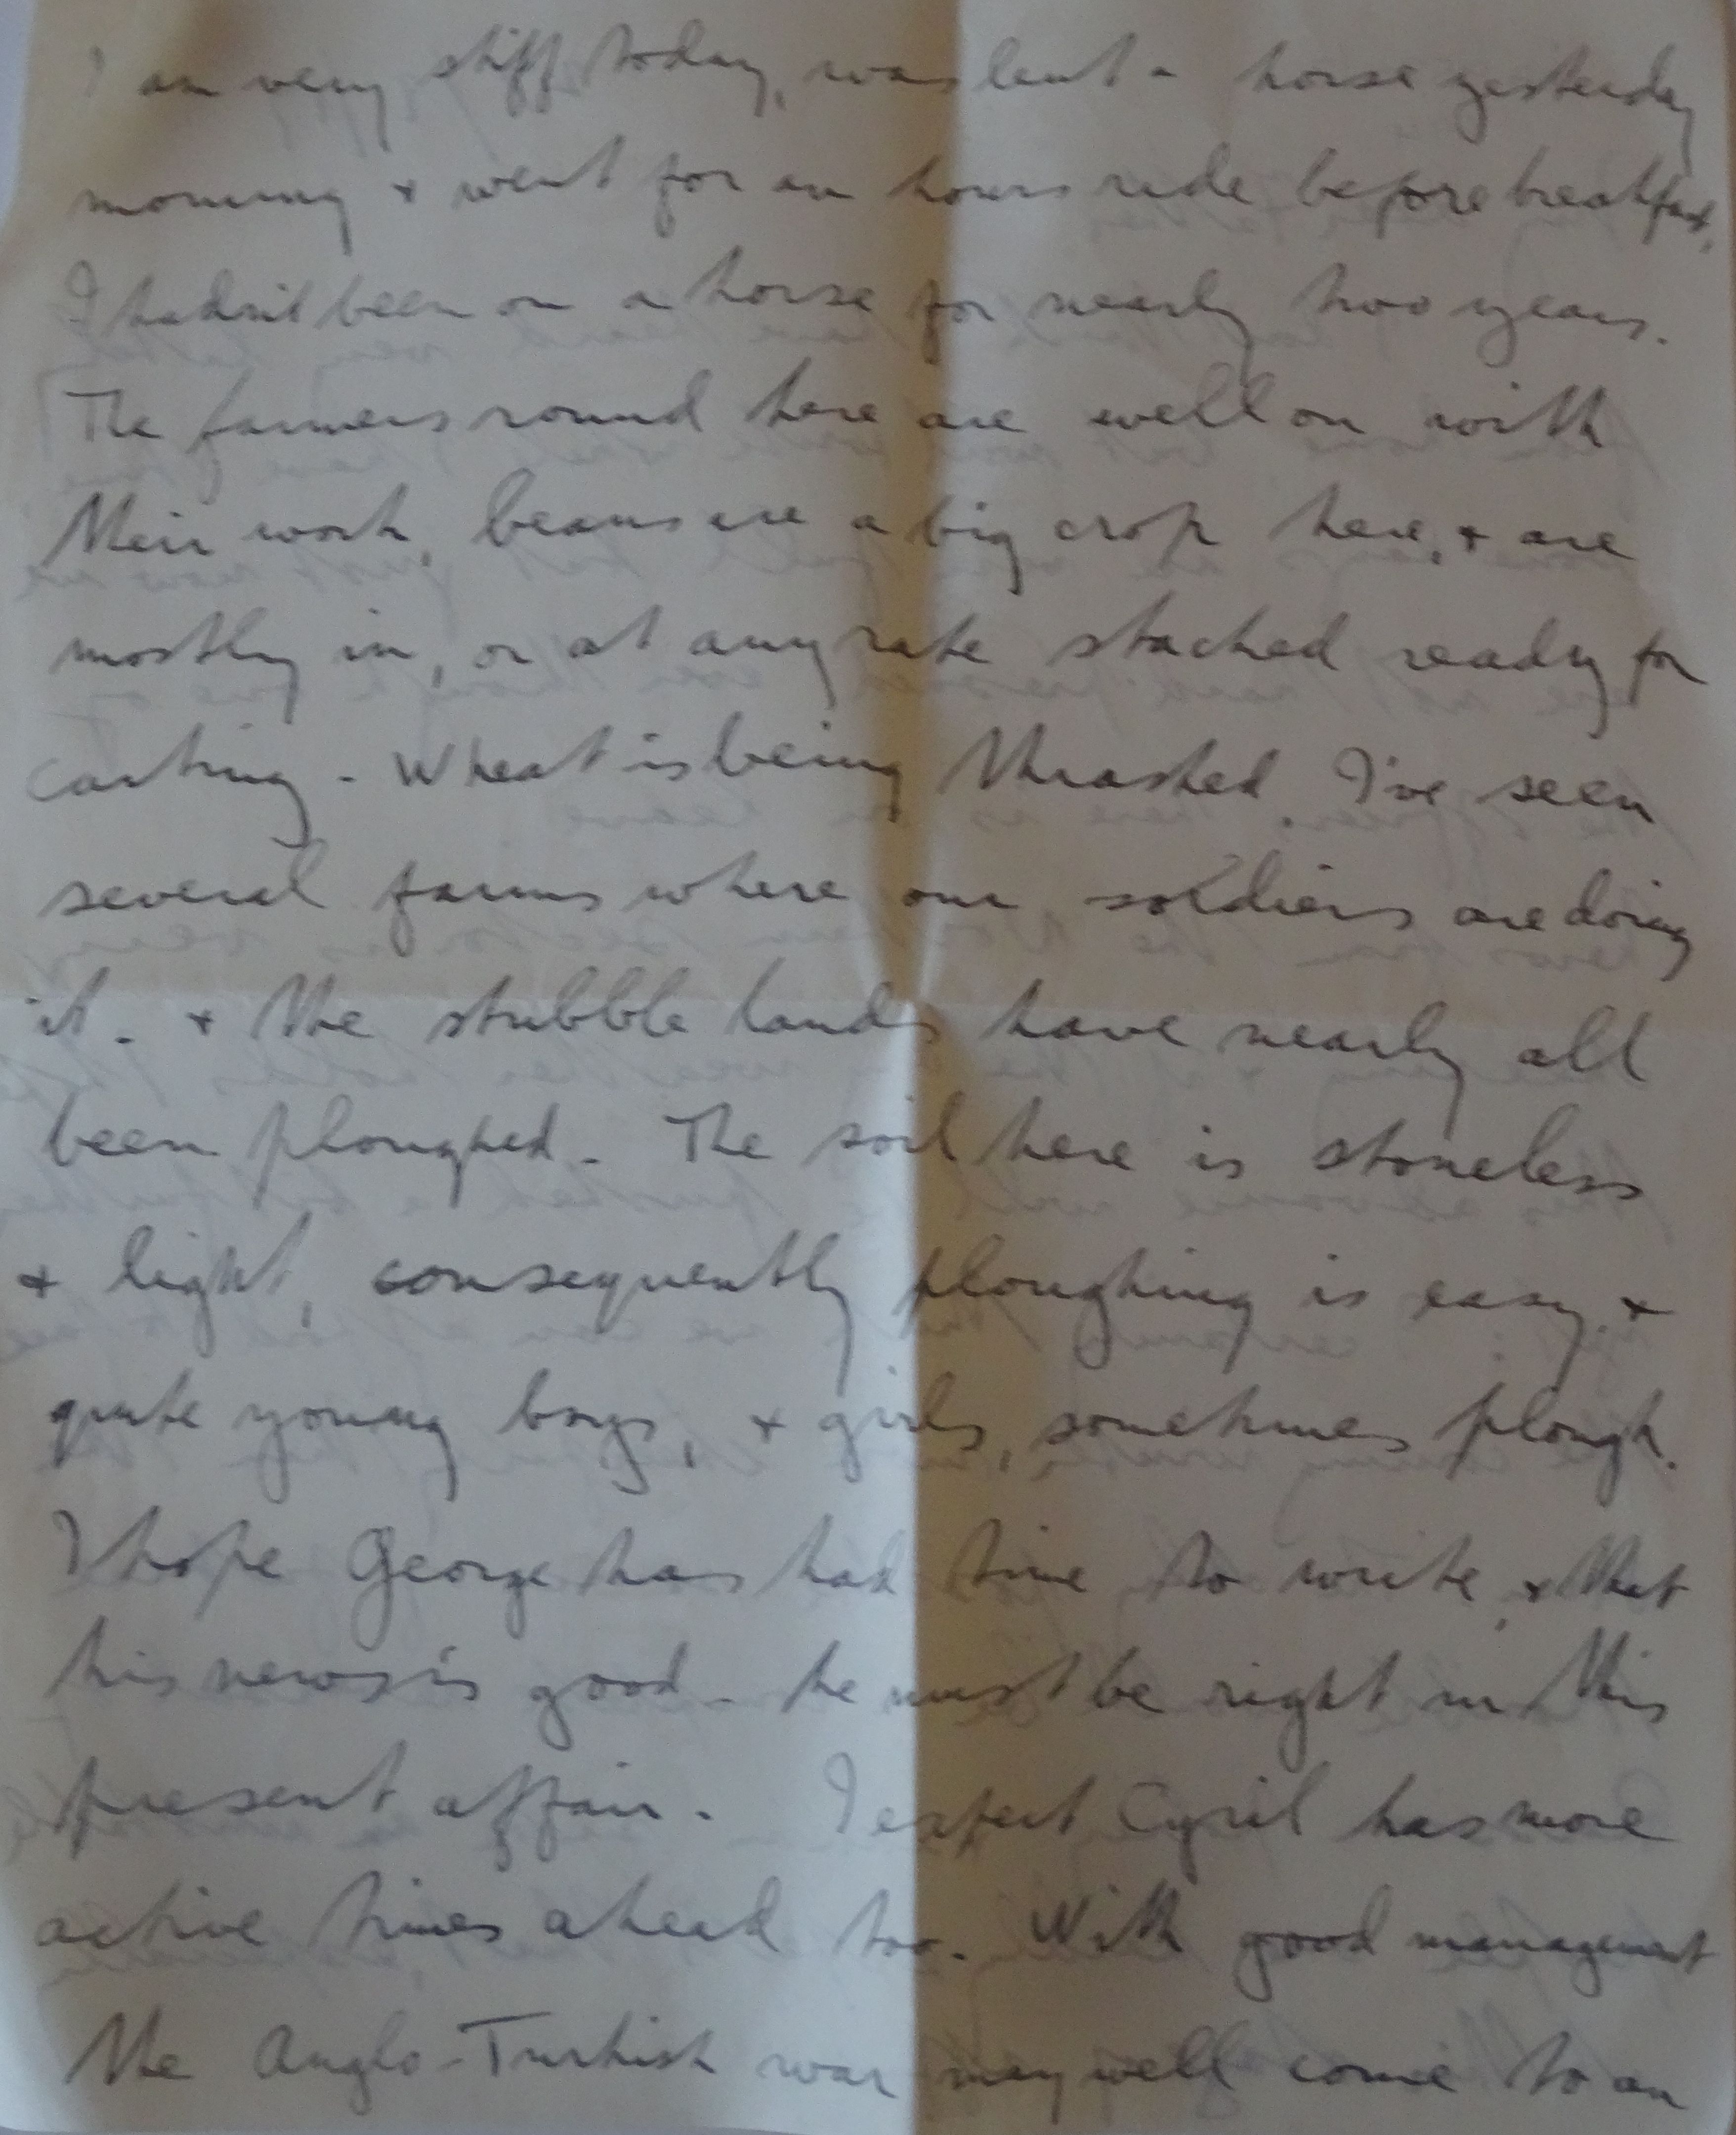 I am very stiff today, was lent a horse yesterday
morning + went for an hours ride before breakfast,
I hadn't been on a horse for nearly two years.
The farmers round here are well on with
their work, beans are a big crop here, + are
mostly in, or at any rate stacked ready for
carting - Wheat is being thrashed. I've seen
several farms where our soldiers are doing
it. + the stubble lands have nearly all
been ploughed - The soil here is stoneless
+ light, consequently ploughing is easy, +
quite young boys, + girls, sometimes plough.
I hope George has had time to write, + that
his news is good - he must be right in this
present affair. I expect Cyril has more
active times ahead too. With good management
the Anglo-Turkish war may well come to an